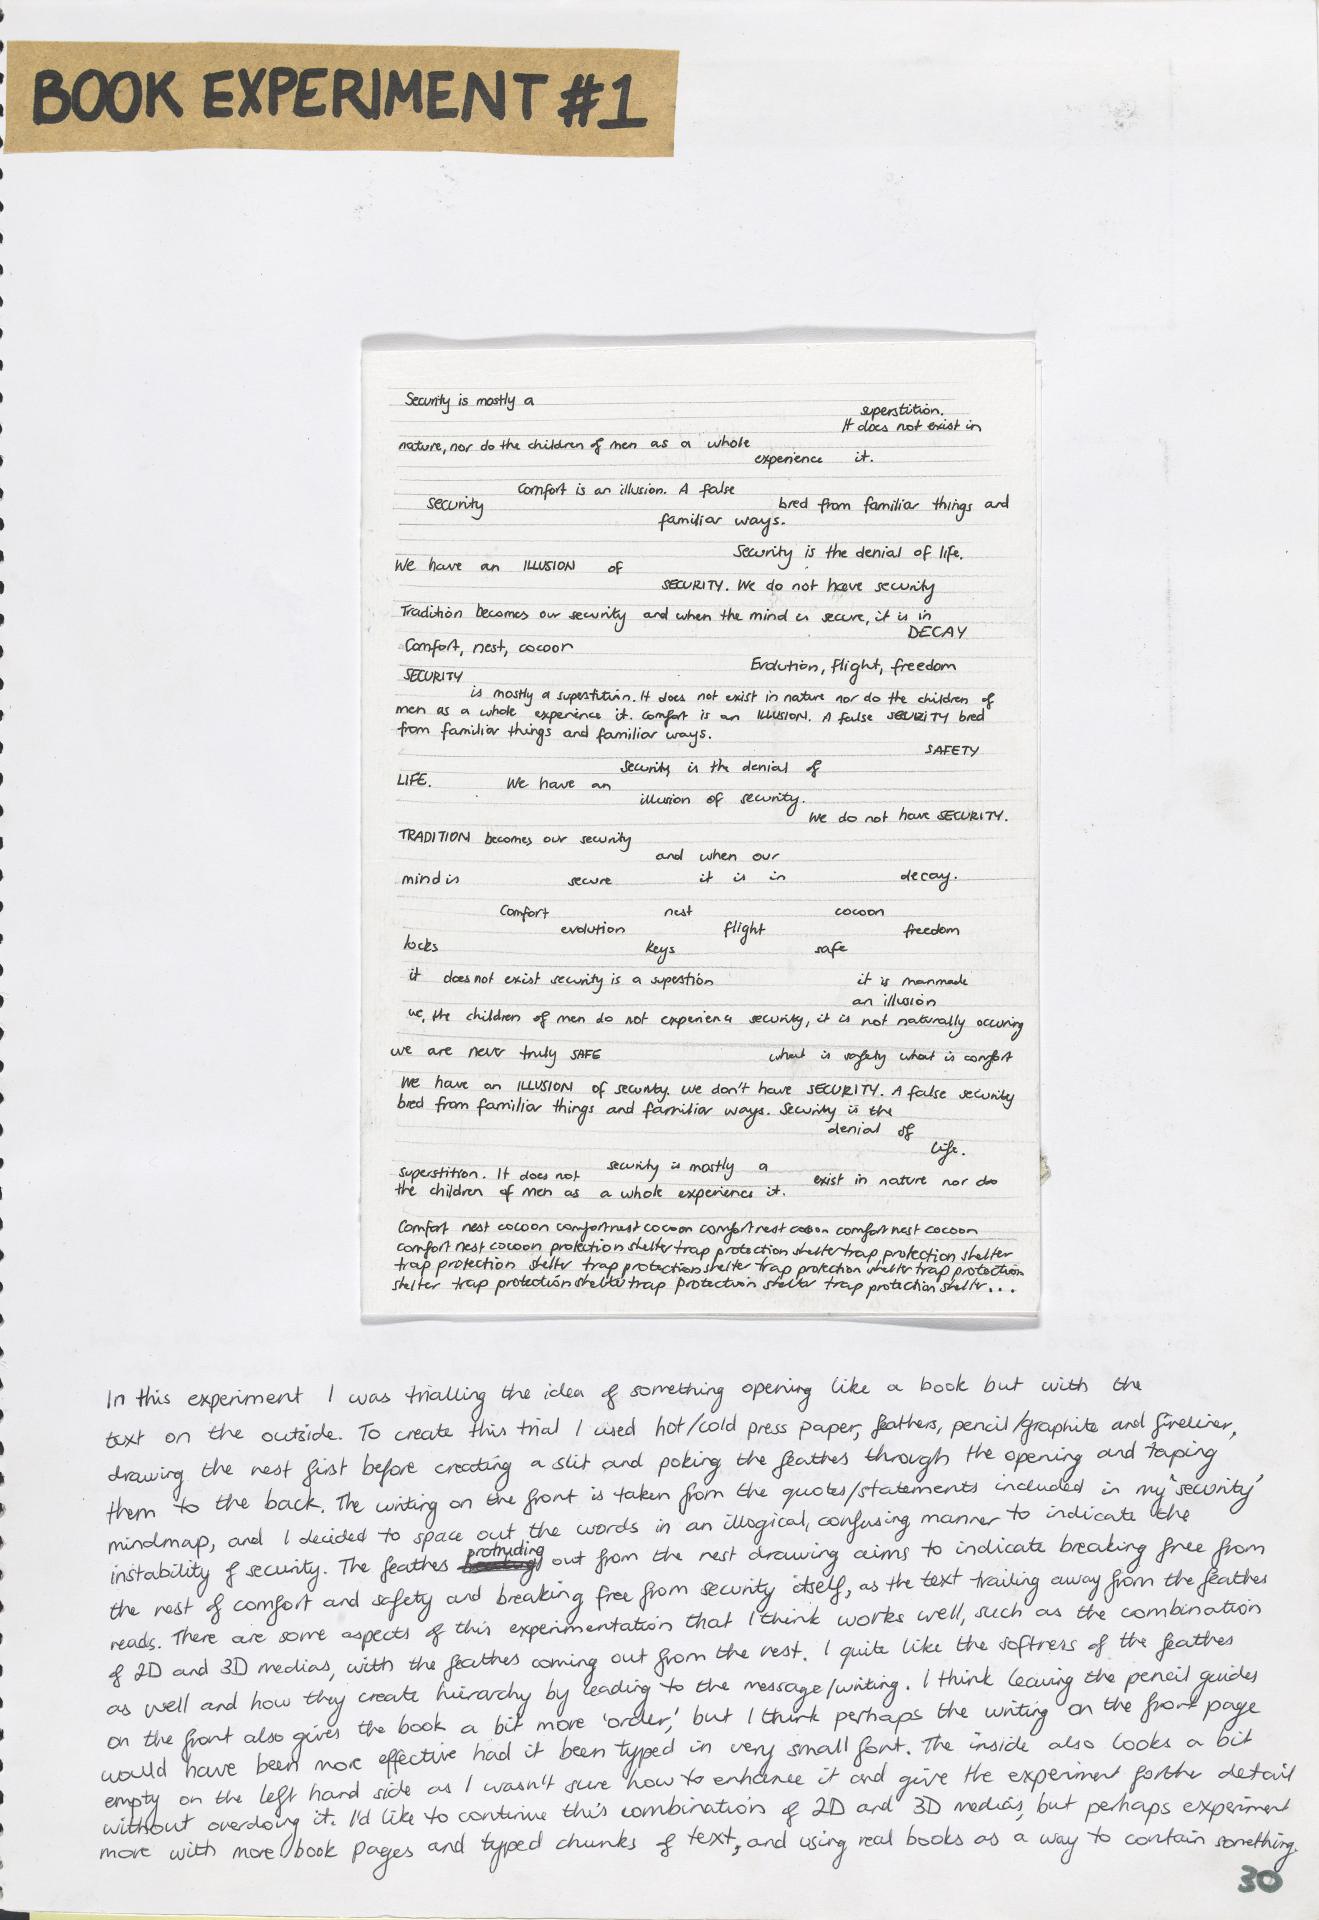 BOOK EXPERIMENT #1
Security is mostly a
superstition.
It does not exist in
nature, nor do the children of men as a whole
experience it.
Comfort is an illusion. A false
security
bred from familiar things and
familiar ways.
Security is the denial of life.
We have an ILLUSION of
SECURITY. We do not have security
Tradition becomes our security and when the mind is secure, it is in
DECAY
Comfort, nest, cocoon
Evolution, flight, freedom
SECURITY
is mostly a superstition. It does not exist in nature nor do the children of
men as a whole experience it. Comfort is an ILLUSION. A false SECURITY bred
from familiar things and familiar ways.
SAFETY
Security is the denial of
LIFE. We have an
illusion of security.
We do not have SECURITY.
TRADITION becomes our security
and when our
mind is secure it is in decay.
Comfort nest cocoon
evolution flight freedom
locks keys safe
it does not exist security is a superstion it is manmade
an illusion
we, the children of men do not experience security, it is not naturally occuring
we are never truly SAFE what is safety what is comfort
We have an ILLUSION of security. We don't have SECURITY. A false security
bred from familiar things and familiar ways. Security is the
denial of
life.
security is mostly a
superstition. It does not exist in nature nor do
the children of men as a whole experience it.
Comfort nest cocoon comfortnest cocoon comfortnest cocoon comfortnest cocoon
comfort nest cocoon protection shelter trap protection shelter trap protection shelter
trap protection shelter trap protection shelter trap protection shelter trap protection
shelter trap protection shelter trap protection shelter trap protection shelter...
In this experiment I was trialling the idea of something opening like a book but with the
text on the outside. To create this trial I used hot/cold press paper, feathers, pencil/graphite and fineliner,
drawing the nest first before creating a slit and poking the feathes through the opening and taping
them to the back. The writing on the front is taken from the quotes/statements included in my 'security'
mindmap, and I decided to space out the words in an illogical, confusing manner to indicate the
instability of security. The feathes protruding out from the nest drawing aims to indicate breaking free from
the nest of comfort and safety and breaking free from security itself, as the text trailing away from the feathes
reads. There are some aspects of this experimentation that I think works well, such as the combination
of 2D and 3D medias, with the feathes coming out from the nest. I quite like the softness of the feathes
as well and how they create hierarchy by leading to the message/writing. I think leaving the pencil guides
on the front also gives the book a bit more 'order', but I think perhaps the writing on the front page
would have been more effective had it been typed in very small font. The inside also looks a bit
empty on the left hand side as I wasn't sure how to enhance it and give the experiment further detail
without overdoing it. I'd like to continue this combination of 2D and 3D medias, but perhaps experiment
more with more book pages and typed chunks of text, and using real books as a way to contain something.
30